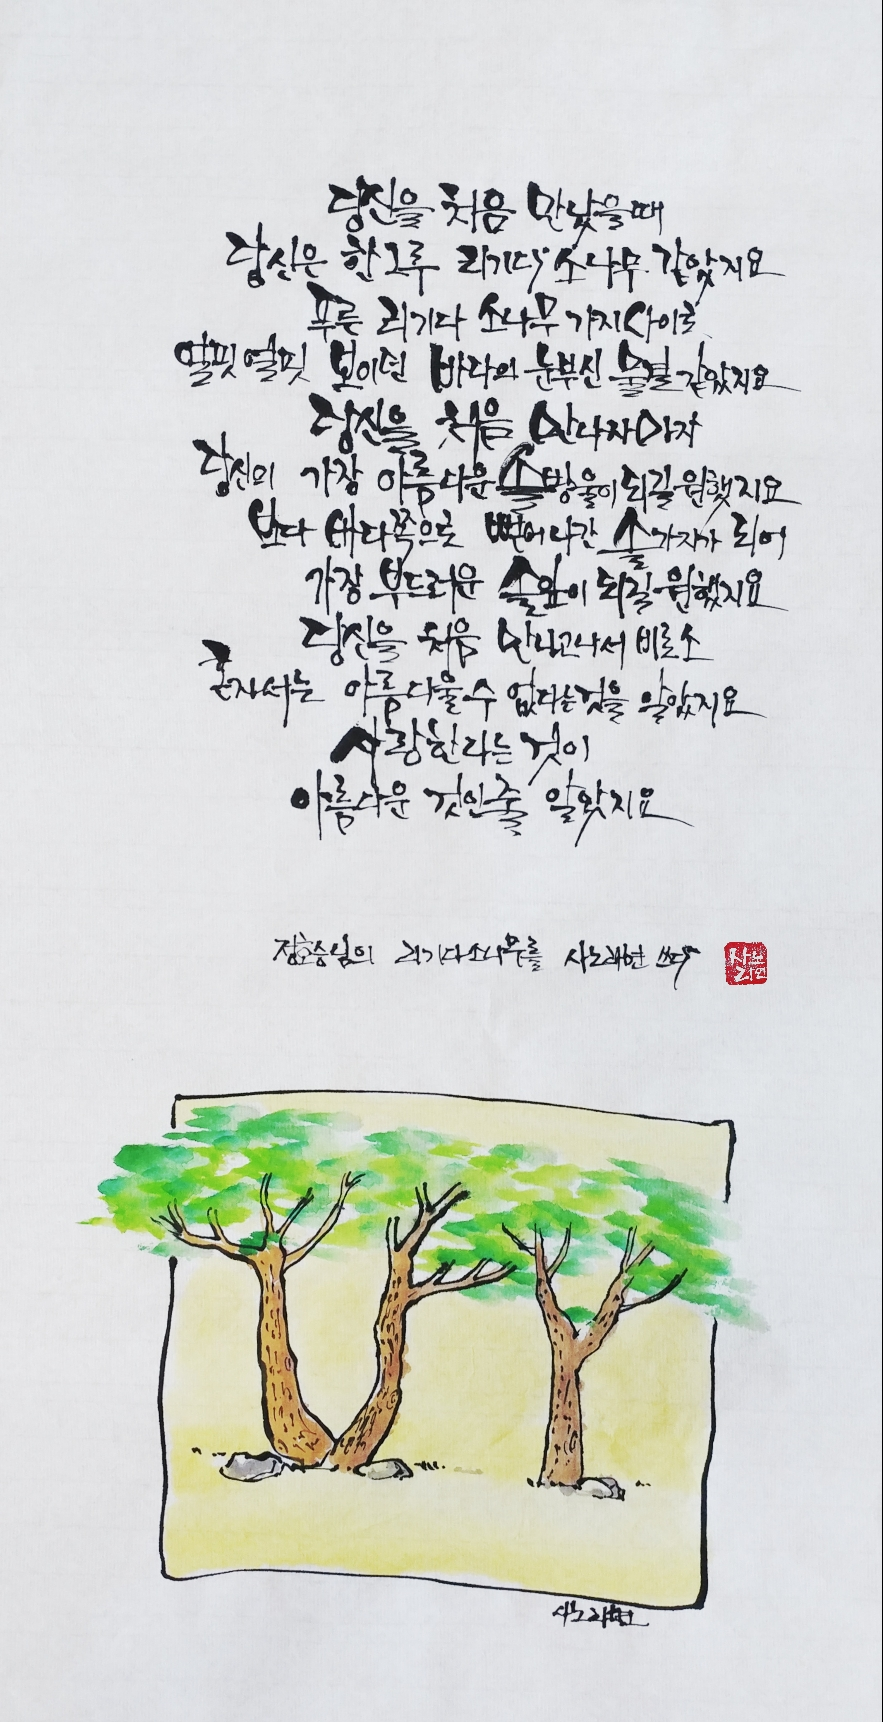 당신을 처음 만났을 때
당신은 한그루 리기다 소나무 같았지요
푸른 리기다 소나무 가지 사이로
얼핏얼핏 보이던 바다의 눈부신 물결 같았지요
당신을 처음 만나자마자
당신의 가장 아름다운 솔방울이 되길 원했지요
보다 바다쪽으로 뻗어나간 솔가지가 되어
가장 부드러운 솔잎이 되길 원했지요
당신을 처음 만나고나서 비로소
혼자서는 아름다울 수 없다는 것을 알았지요
사랑한다는 것이
아름다운 것인 줄 알았지요
정호승님의 리기다소나무를 사노라현 쓰다
사노라현